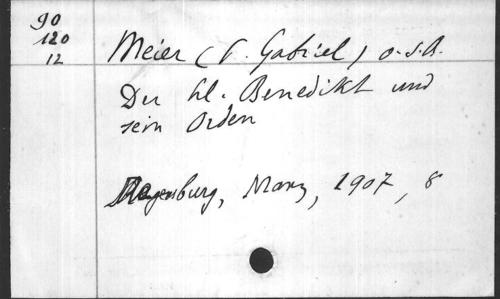 90
120
12
Meier (P. Gabriel) O.S.B.
Der hl. Benedikt und
sein Orden
Regensburg, Manz, 1907, 8